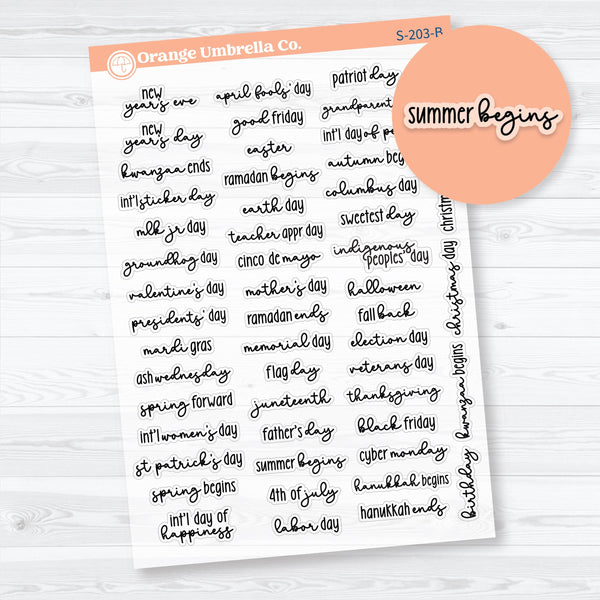 Orange Umbrella Co.
S-203-B
summer begins
new
year's eve
new
year's day
kwanzaa ends
int'l sticker day
mlk jr day
groundhog day
valentine's day
presidents' day
mardi gras
ash wednesday
spring forward
int'l women's day
st patrick's day
spring begins
int'l day of
happiness
april fools' day
good friday
easter
ramadan begins
earth day
teacher appr day
cinco de mayo
mother's day
ramadan ends
memorial day
flag day
juneteenth
father's day
summer begins
4th of july
labor day
patriot day
grandparent
int'l day of
autumn
columbus day
sweetest day
indigenous
peoples' day
halloween
fall back
election day
veterans day
thanksgiving
black friday
cyber monday
hanukkah begins
hanukkah ends
christmas day
kwanzaa begins
birthday